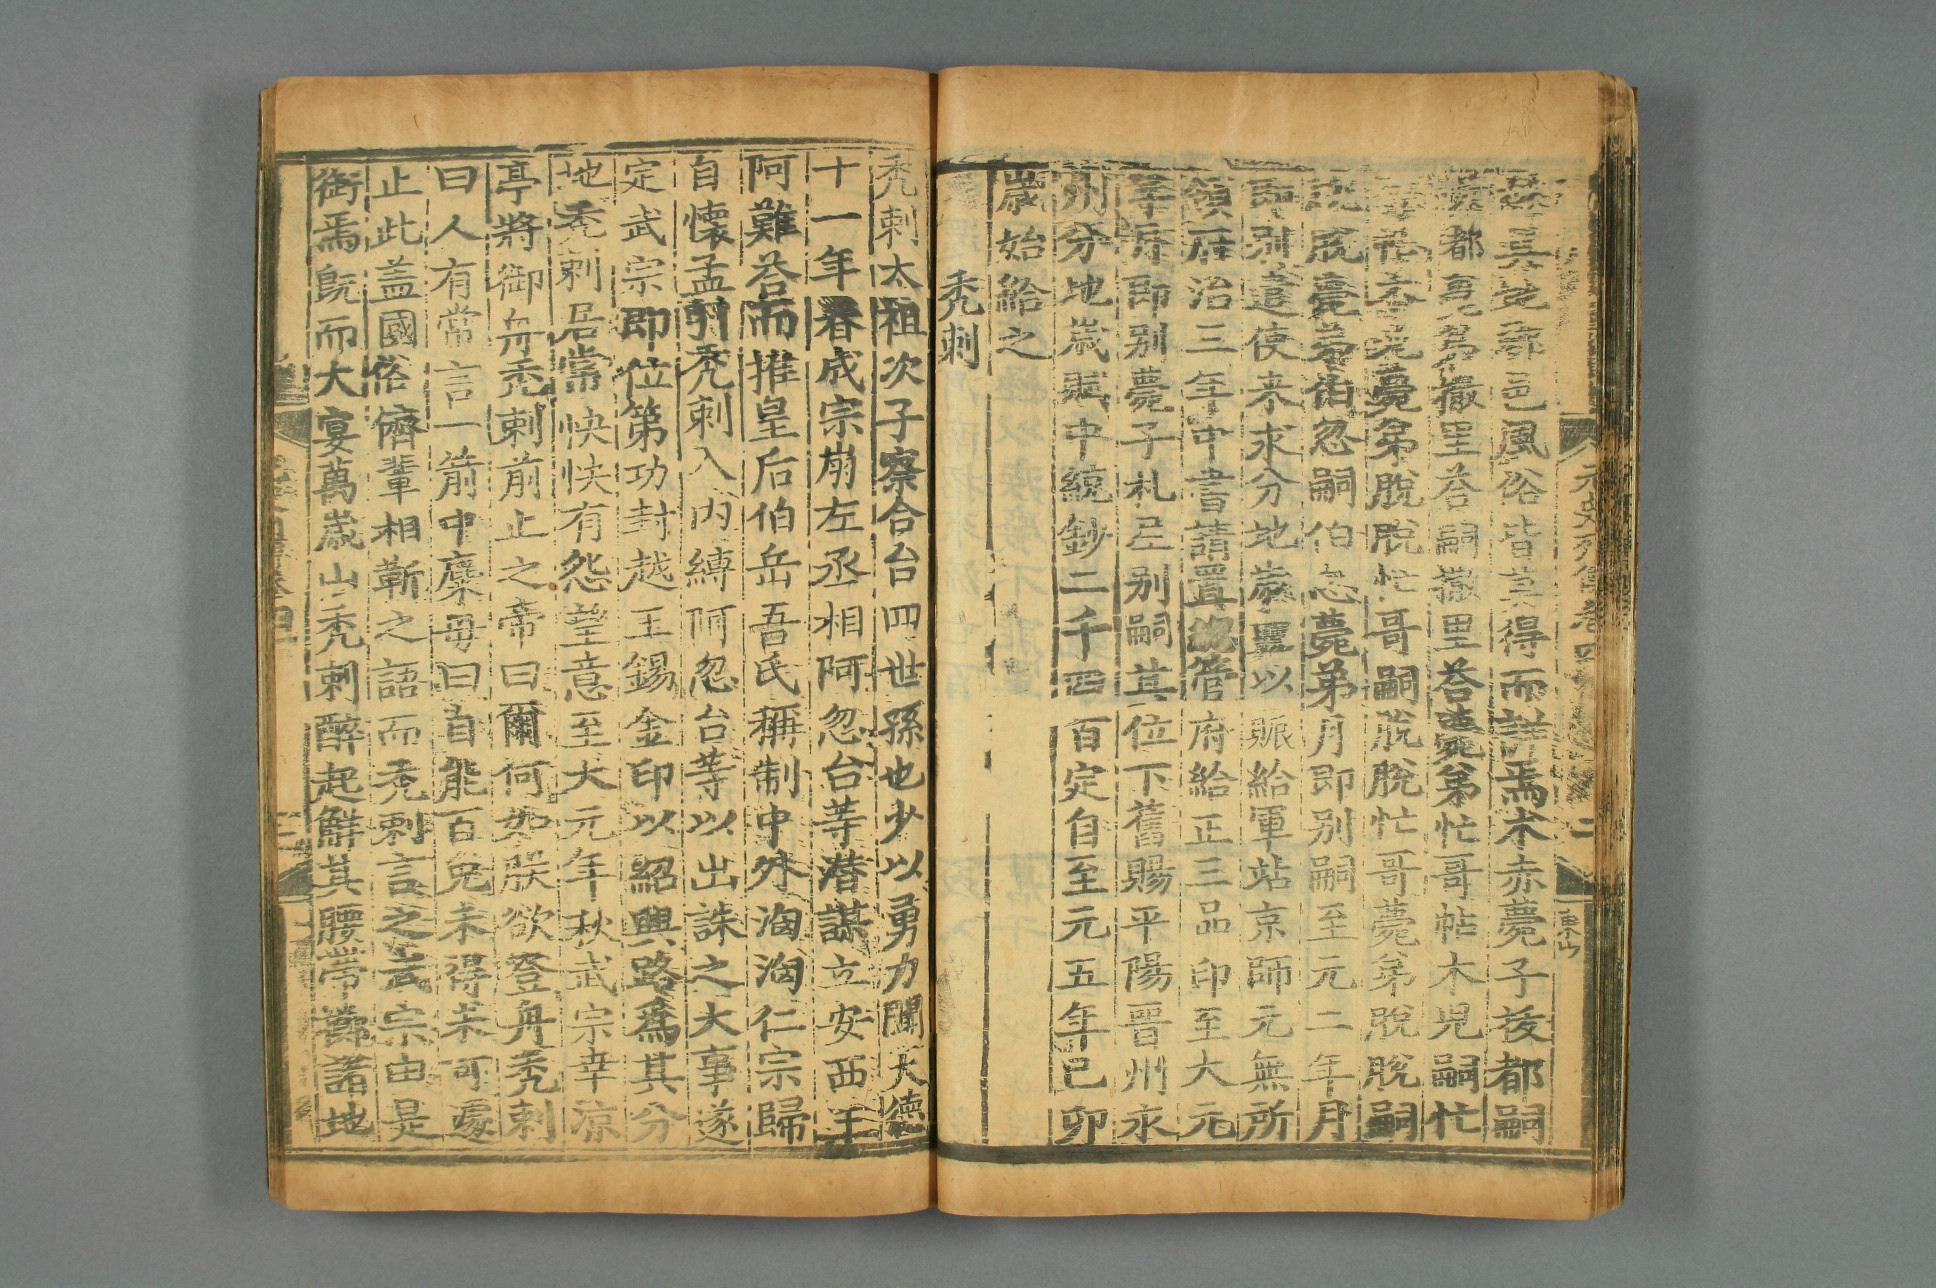 故其地郡邑風俗皆莫得而詳焉术赤薨子拔都嗣
拔都薨弟撒里荅嗣撒里荅薨弟忙哥帖木兒嗣忙
哥帖木兒薨弟脫脫忙哥嗣脫脫忙哥薨弟脫脫嗣
脫脫薨弟伯忽嗣伯忽薨弟月即別嗣至元二年月
即別遣使來求分地歲賜以賑給軍站京師元無所
領府治三年中書請置總管府給正三品印至大元
年月即別薨子札尼別嗣其位下舊賜平陽晉州永
州分地歲賦中統鈔二千四百定自至元五年己卯
歲始給之
禿剌
禿剌太祖次子察合台四世孫也少以勇力聞大德
十一年春成宗崩左丞相阿忽台等潛謀立安西王
阿難荅而推皇后伯岳吾氏稱制中外洶洶仁宗歸
自懷孟引禿剌入內縛阿忽台等以出誅之大事遂
定武宗即位第功封越王錫金印以紹興路爲其分
地禿剌居常怏怏有怨望意至大元年秋武宗幸涼
亭將御舟禿剌前止之帝曰爾何如朕欲登舟禿剌
曰人有常言一箭中麋毋曰自能百兔未得未可遽
止此盖國俗儕輩相靳之語而禿剌言之武宗由是
銜焉旣而大宴萬歲山禿剌醉起解其腰帶擲諸地
元史列傳卷四